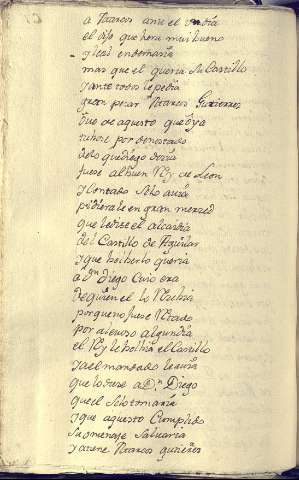 a Marcos ante el un dia
el dijo que hera mui bueno
y leal en demasia
mas que el queria su Castillo
y ante todos le pedia
gran pesar Marcos Gutierrez
tuvo de aquesto que oya
tubose por denostado
de lo que diego decia
fuese al buen Rey de Leon
y contado se lo avia
pidierale en gran merced
que le diese el alcaidia
del Castillo de Aguilar
y que bolberlo queria
a Dn Diego Cuio era
de quien el lo
porque no fuese Retado
por alevoso algun dia
el Rey le bolbia el Castillo
y ael mandado le avia
que lo diese a Dn Diego
que el se lo tomaria
y que aquesto Cumplido
su omenaje Salvaria
Marcos gutierres